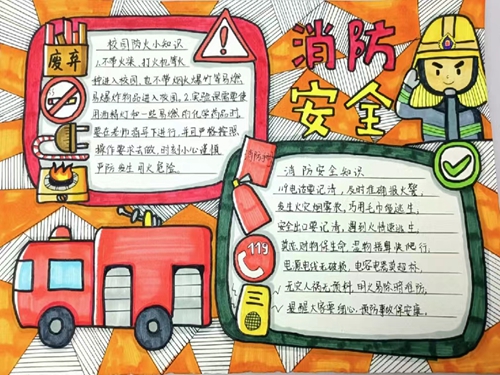 消防
安全
废弃
校园防火小知识
1.不带火柴、打火机等火
种进入校园,也不带烟火爆竹等易燃
易爆炸物品进入校园。2.实验课需要使
用酒精灯和一些易燃的化学药品时,
要在老师指导下进行,并且严格按照
操作要求去做,时刻小心谨慎
严防发生用火危险。
消防安全知识
119电话要记清,及时准确报火警,
发生火灾烟雾浓,巧用毛巾俯逃生。
安全出口要记清,遇到火情速逃生。
莫恋财物保生命,湿物捂鼻快爬行。
电源电线无破损,电容电表莫超标,
无灾人祸无预料,用火易除明危防,
提醒大家要细心,预防事故保安康。
119